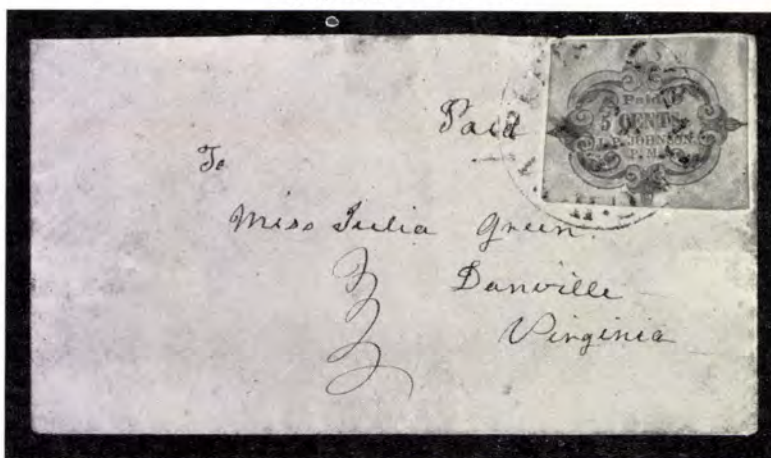 Paid
Paid
5 CENTS
J. P. JOHNSON.
P. M.
To
Miss Julia Green.
Danville
Virginia